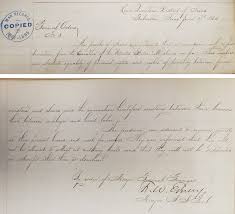 COPIED
Head Quarters District of Texas
Galveston Texas June 19th 1865
General Orders
No. 3.
The people of Texas are informed that in accordance with a
proclamation from the Executive of the United States all slaves are free. This involves
an absolute equality of personal rights and rights of property between former
masters and slaves and the connection heretofore existing between them becomes
that between employer and hired labor.
The freedmen are advised to remain quietly
at their present homes and work for wages. They are informed that they will
not be allowed to collect at military posts and that they will not be supported
in idleness either there or elsewhere.
By order of Major General Granger
Emery
Major